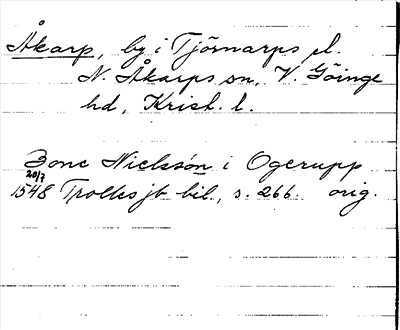 Åkarp, by i Tjörnarps el.
N. Åkarps sn, V. Göinge
hd, Krist. l.
Bonc Nielssøn i Ogerupp
20/7
1548 Trolles jb bil., s. 266. orig.